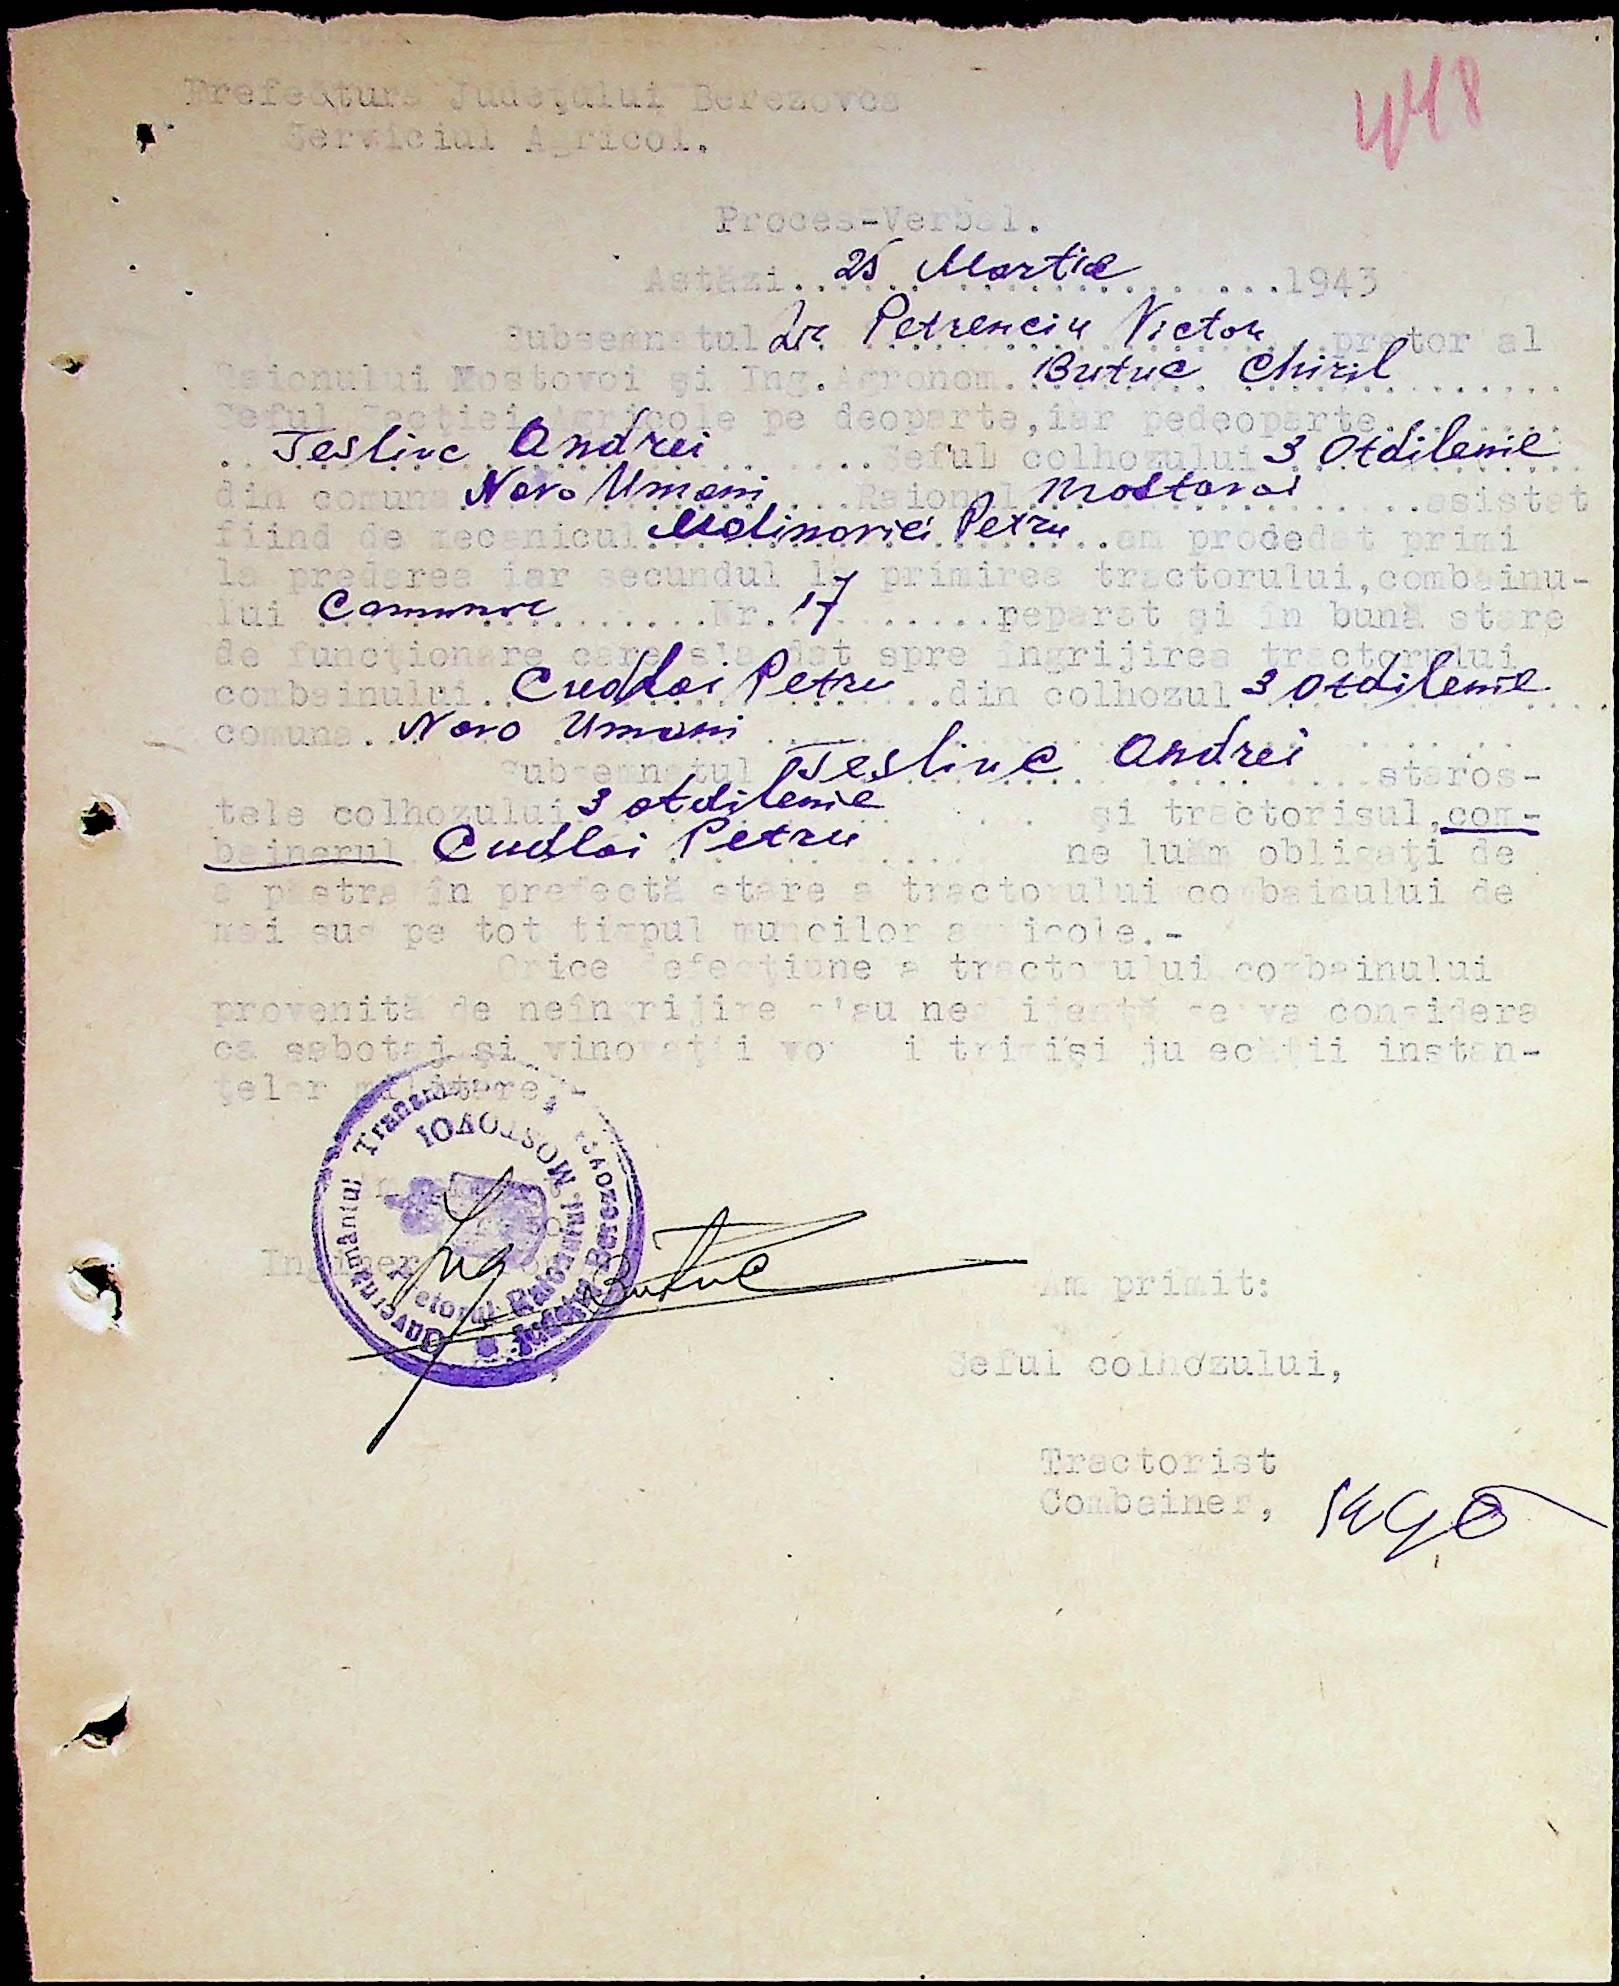 448
Prefectura Judeţului Berezovca
Serviciul Agricol.
Proces-Verbal.
Astăzi.. 25 Martie ...1943
Subsemnatul Dr. Petrenciu Victor pretor al
Raionului Mostovoi şi Ing. Agronom. Butuc Chiril
Seful Secţiei Agricole pe deoparte, iar pedeoparte.
Tesliuc Andrei ...Seful colhozului 3 Otdilenie
din comuna Novo Umani ...Raionul Mostovoi asistat
fiind de mecanicul Malinovici Petru ..am procedat primi
la predarea iar secundul la primirea tractorului, combainu-
lui Comunar Nr. 17 reparat şi în bună stare
de funcţionare care s'a dat spre îngrijirea tractorului
combainului.. Cudlai Petru ..din colhozul 3 Otdilenie
comuna. Novo Umani
Subsemnatul Tesliuc Andrei staros-
tele colhozului 3 otdilenie şi tractorisul, com-
bainerul Cudlai Petru ne luăm obligaţi de
a păstra în prefectă stare a tractorului combainului de
mai sus pe tot timpul muncilor agricole.-
Orice defecţiune a tractorului combainului
provenită de neîngrijire s'au neglijenţă se va considera
ca sabotaj şi vinovaţii vor fi trimişi judecăţii instan-
ţelor militare.-
Guvernământul Transnistriei
Judeţul Berezovca
Pretorul Raionului MOSTOVOI
Inginer
Ing Butuc
Am primit:
Seful colhozului,
Tractorist
Combainer,